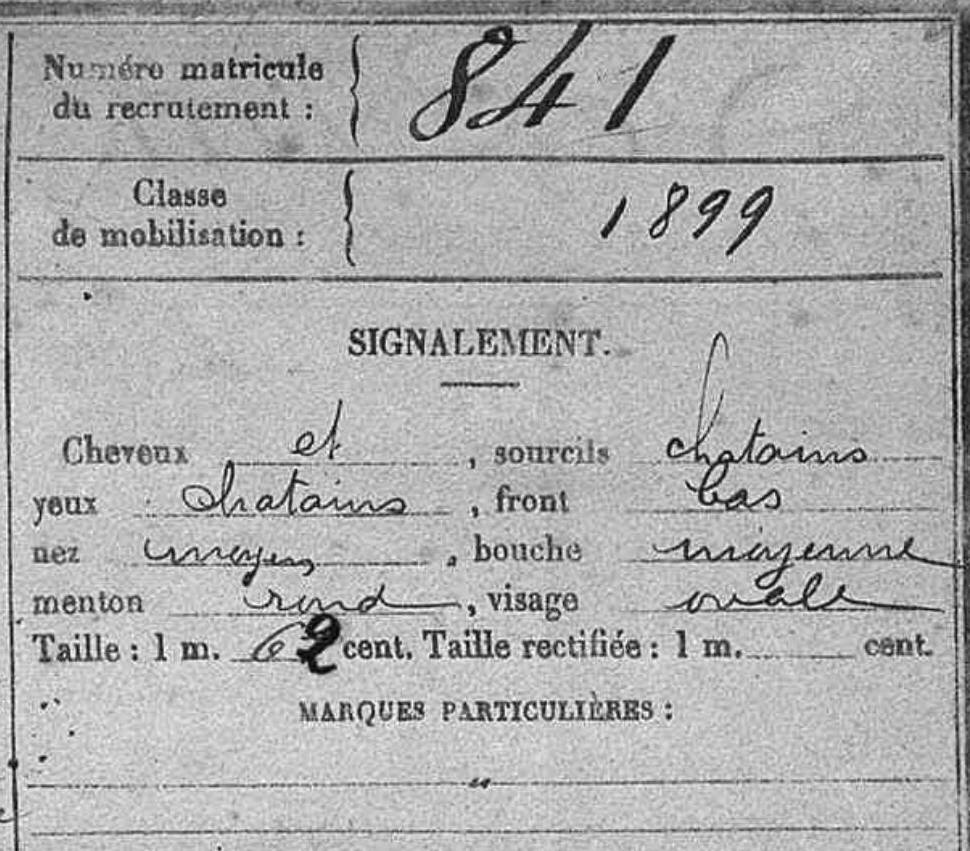 Numéro matricule
du recrutement : { 841
Classe
de mobilisation : { 1899
SIGNALEMENT.
Cheveux et , sourcils chatains
yeux chatains , front bas
nez moyen , bouche moyenne
menton rond , visage ovale
Taille : 1 m. 62 cent. Taille rectifiée : 1 m. cent.
MARQUES PARTICULIÈRES :
"